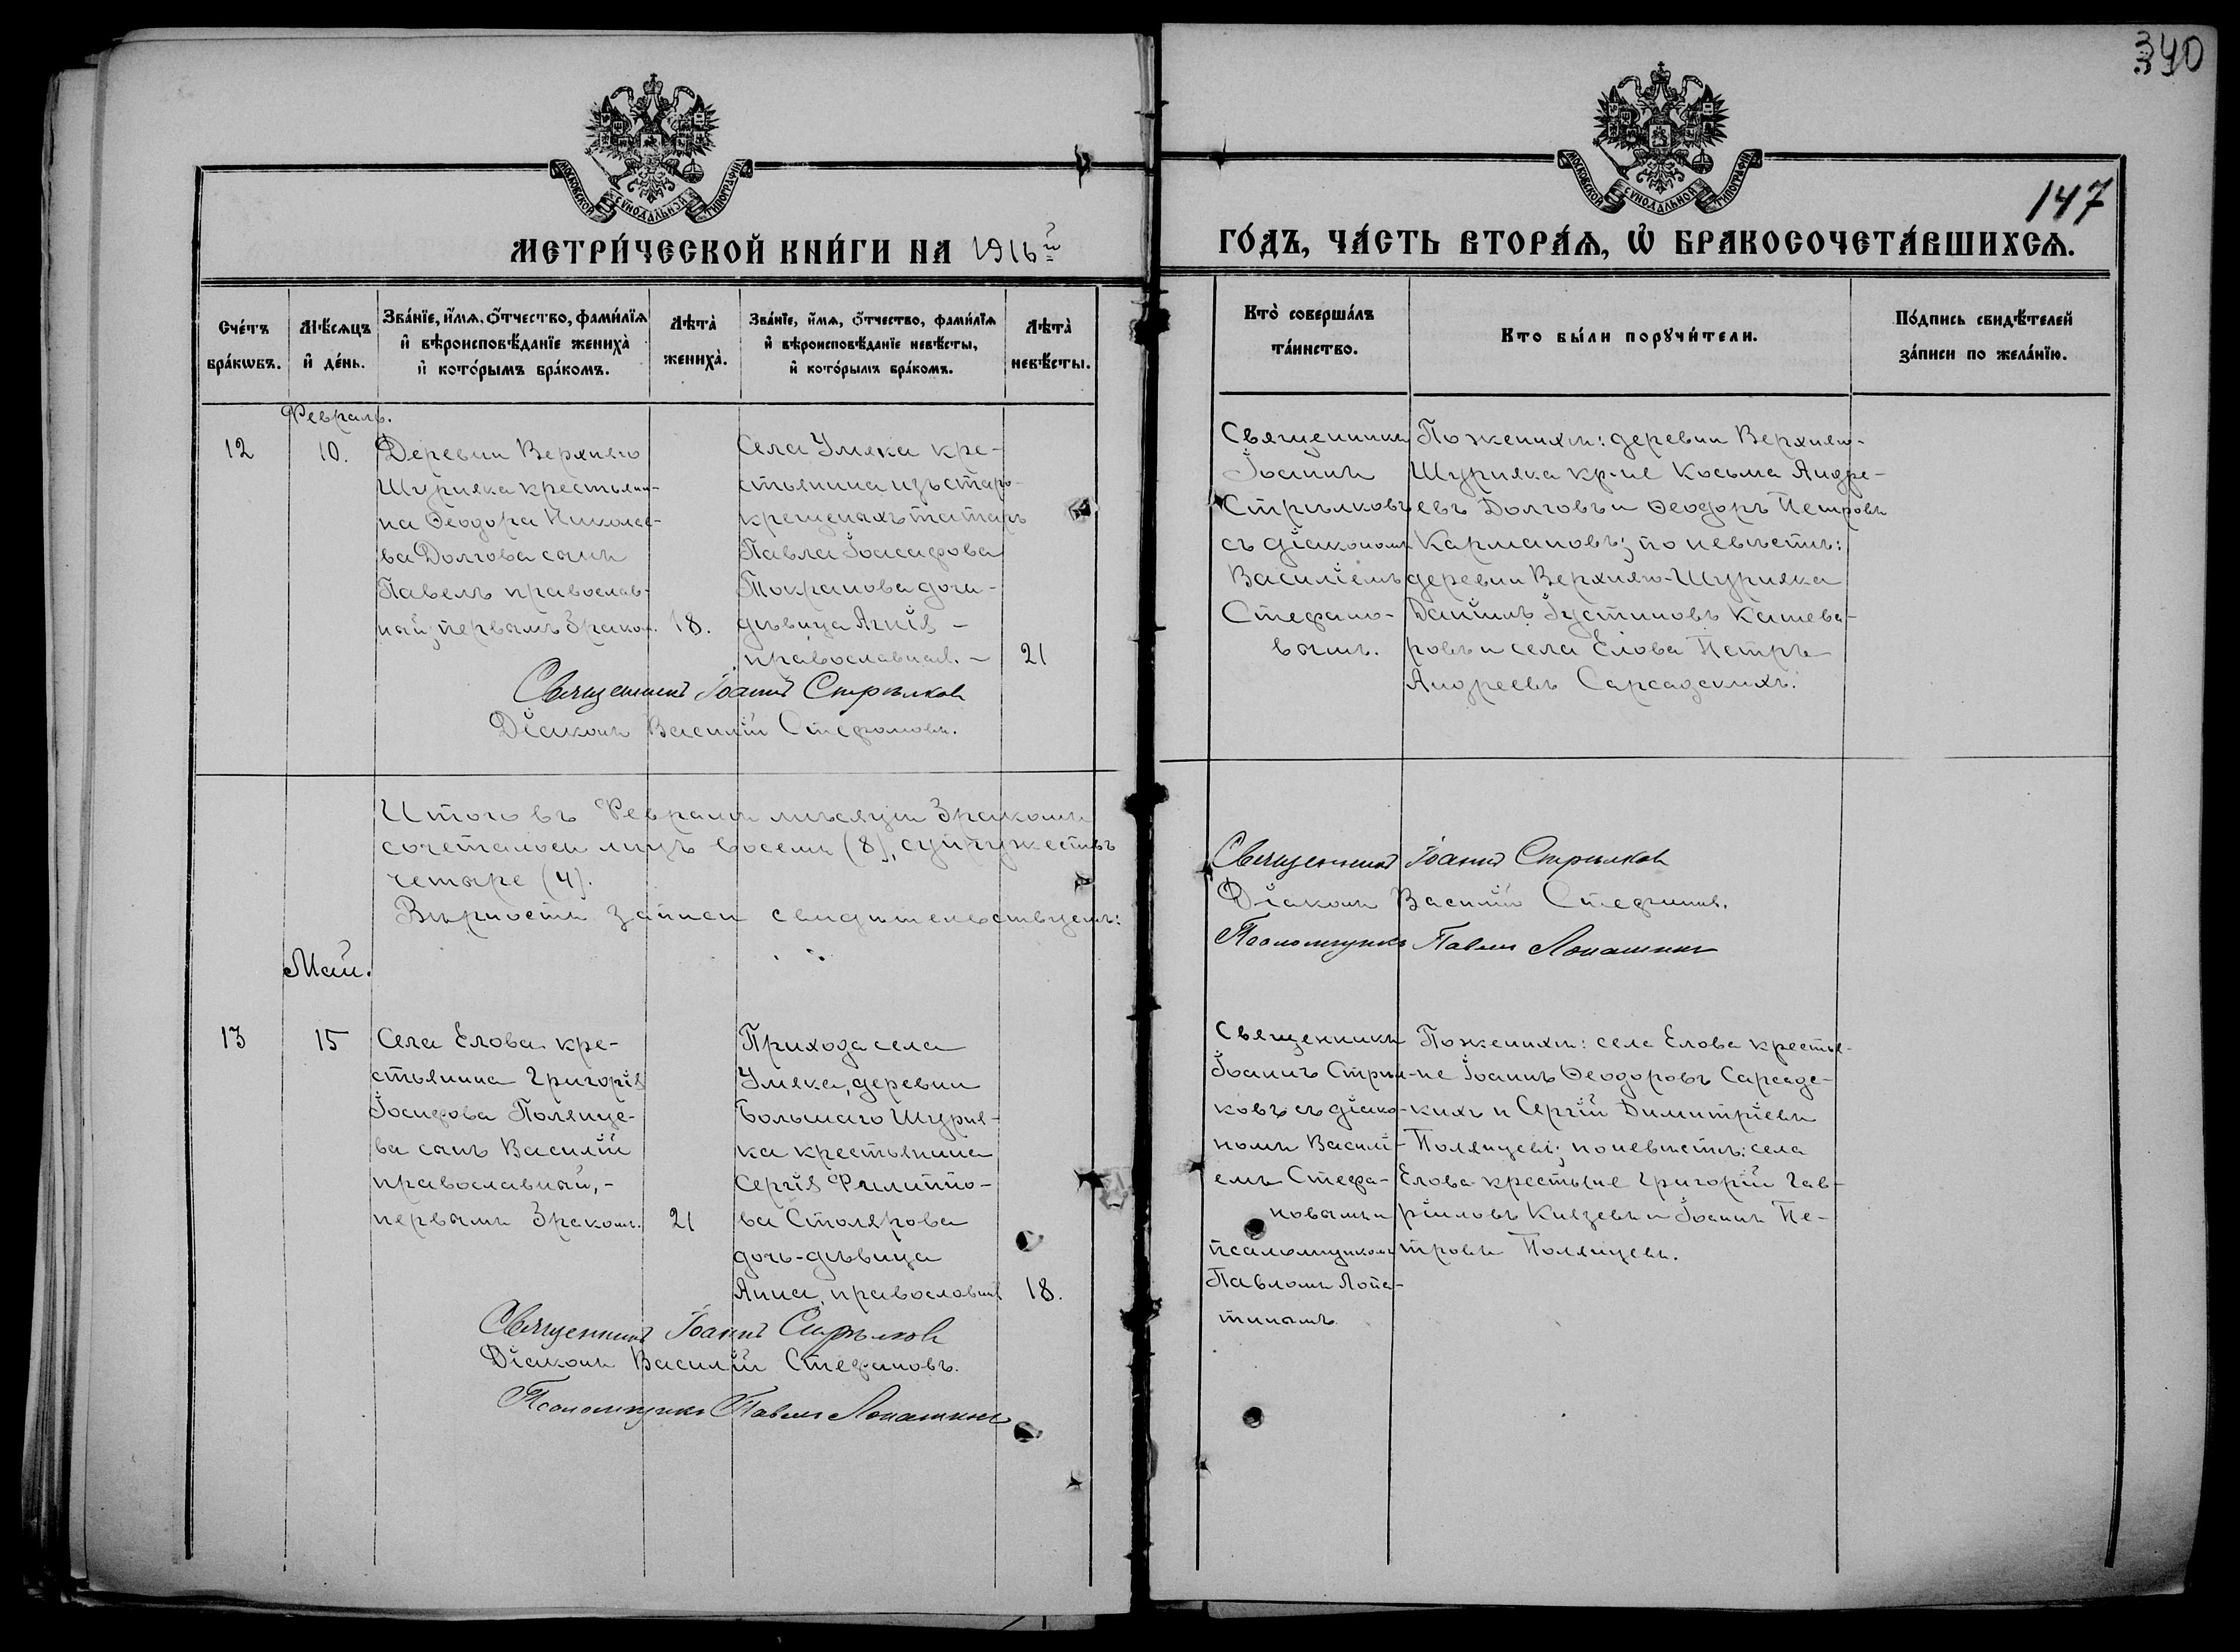 340
147
МОСКОВСКОЙ СѴНОДАЛЬНОЙ ТИПОГРАФІИ
МОСКОВСКОЙ СѴНОДАЛЬНОЙ ТИПОГРАФІИ
МЕТРИ́ЧЕСКОЙ КНИ́ГИ НА 1916й
ГО́ДЪ, ЧА́СТЬ ВТОРА́Ѧ, Ѽ БРАКОСОЧЕТА́ВШИХСѦ.
Сче́тъ
бра́кѡвъ.
Мѣ́сѧцъ
и҆ де́нь.
Зва́нїе, и҆́мѧ, ѻ҆́тчество, фами́лїѧ
и҆ вѣроисповѣ́данїе жениха̀
и҆ кото́рымъ бра́комъ.
Лѣта̀
жениха̀.
Зва́нїе, и҆́мѧ, ѻ҆́тчество, фами́лїѧ
и҆ вѣроисповѣ́данїе невѣ́сты,
и҆ кото́рымъ бра́комъ.
Лѣта̀
невѣ́сты.
Кто̀ соверша́лъ
та́инство.
Кто бы́ли порꙋчи́тели.
По́дпись свидѣ́телей
за́писи по жела́нїю.
Февраль.
12
10.
Деревни Верхняго
Шурняка крестьяни-
на Ѳеодора Николае-
ва Долгова сынъ
Павелъ православ-
ный, первымъ бракомъ.
18.
Села Умяка кре-
стьянина изъ старо-
крещеныхъ татаръ
Павла Іоасафова
Токранова дочь -
дѣвица Агнія -
православная. -
21
Священникъ
Іоаннъ
Стрѣлковъ
съ діакономъ
Василіемъ
Стефано-
вымъ.
По женихѣ: деревни Верхняго-
Шурняка кр-не Косьма Андре-
евъ Долговъ и Ѳеодоръ Петровъ
Кармановъ; по невѣстѣ:
деревни Верхняго-Шурняка
Даніилъ Іустиновъ Кашева-
ровъ и села Елова Петръ
Андреевъ Сарсадскихъ.
Священникъ Іоаннъ Стрѣлковъ
Діаконъ Василій Стефановъ.
Итого въ Февралѣ мѣсяцѣ бракомъ
сочеталось лицъ восемь (8), супружествъ
четыре (4).
Вѣрность записи свидѣтельствуемъ:
Священникъ Іоаннъ Стрѣлковъ
Діаконъ Василій Стефановъ.
Псаломщикъ Павелъ Лопатинъ
Май.
13
15
Села Елова кре-
стьянина Григорія
Іосифова Полянце-
ва сынъ Василій
православный, -
первымъ бракомъ.
21
Прихода села
Умяка, деревни
Большаго Шурня-
ка крестьянина
Сергія Филиппо-
ва Столярова
дочь-дѣвица
Анна, православная
18.
Священникъ
Іоаннъ Стрѣл-
ковъ съ діако-
номъ Василі-
емъ Стефа-
новымъ и
псаломщикомъ
Павломъ Лопа-
тинымъ.
По женихѣ: села Елова крестья-
не Іоаннъ Ѳеодоровъ Сарсадс-
кихъ и Сергій Димитріевъ
Полянцевъ; по невѣстѣ: села
Елова крестьяне Григорій Гав-
ріиловъ Князевъ и Іоаннъ Пе-
тровъ Полянцевъ.
Священникъ Іоаннъ Стрѣлковъ
Діаконъ Василій Стефановъ.
Псаломщикъ Павелъ Лопатинъ